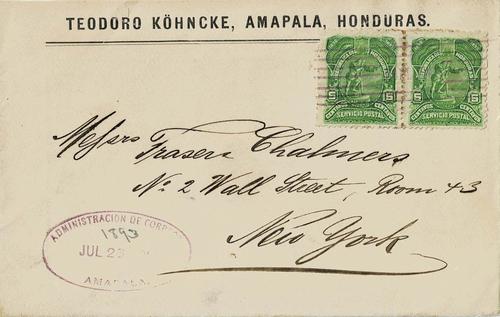 TEODORO KÖHNCKE, AMAPALA, HONDURAS.
5 5 5 5
CENTAVOS CENTAVOS
SERVICIO POSTAL SERVICIO POSTAL
Messrs Fraser & Chalmers
No. 2 Wall Street, Room 43
New York
ADMINISTRACION DE CORREOS
1893
JUL 23
AMAPALA.